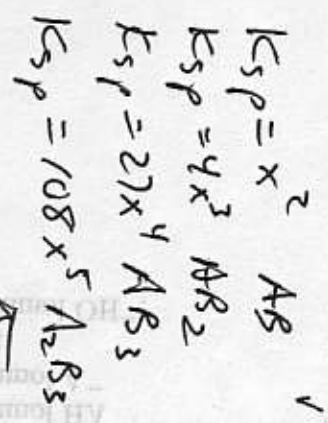 Ksp = x² AB
Ksp = 4x³ AB₂
Ksp = 27x⁴ AB₃
Ksp = 108x⁵ A₂B₃